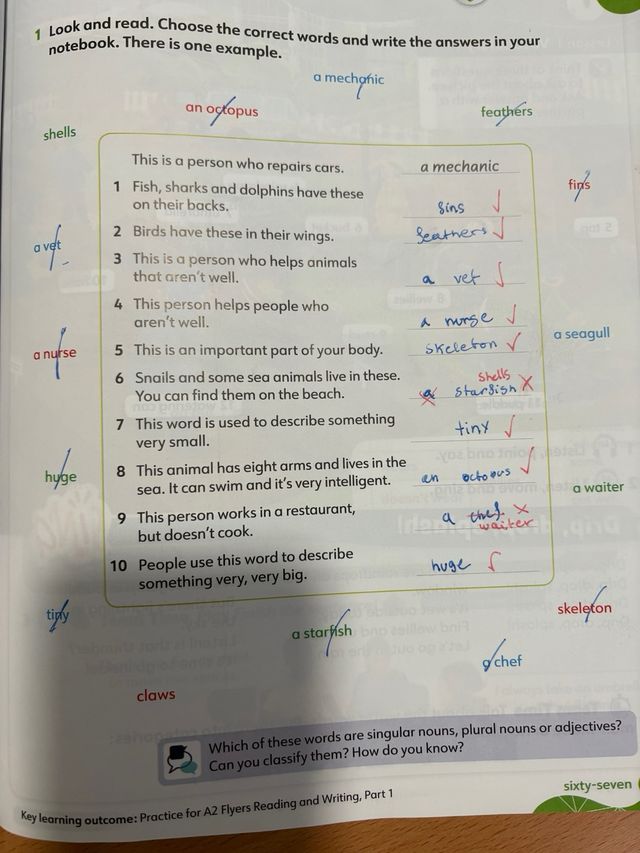 1 Look and read. Choose the correct words and write the answers in your
notebook. There is one example.
a mechanic
an octopus
feathers
shells
This is a person who repairs cars.
a mechanic
fins
1 Fish, sharks and dolphins have these
on their backs.
fins
2 Birds have these in their wings.
feathers
a vet
3 This is a person who helps animals
that aren't well.
a vet
4 This person helps people who
aren't well.
a nurse
a seagull
a nurse
5 This is an important part of your body.
skeleton
6 Snails and some sea animals live in these.
You can find them on the beach.
shells
a starfish
7 This word is used to describe something
very small.
tiny
huge
8 This animal has eight arms and lives in the
sea. It can swim and it's very intelligent.
an octopus
a waiter
9 This person works in a restaurant,
but doesn't cook.
a chef.
waiter
10 People use this word to describe
something very, very big.
huge
tiny
skeleton
a starfish
a chef
claws
Which of these words are singular nouns, plural nouns or adjectives?
Can you classify them? How do you know?
sixty-seven
Key learning outcome: Practice for A2 Flyers Reading and Writing, Part 1